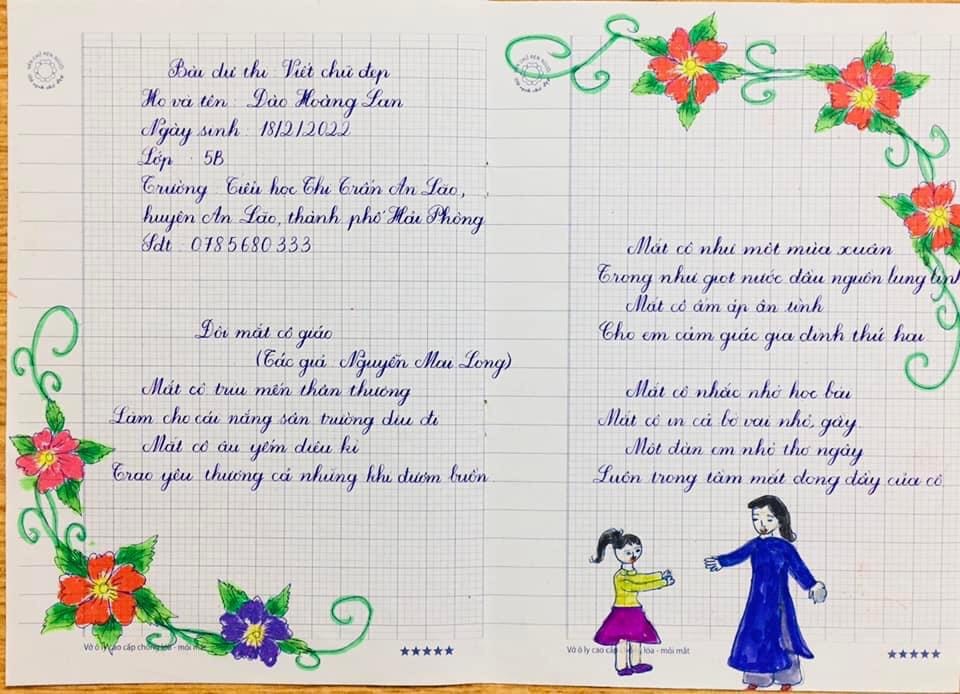 Bài dự thi: Viết chữ đẹp
Họ và tên: Đào Hoàng Lan
Ngày sinh: 18/2/2022
Lớp: 5B
Trường: Tiểu học Thị Trấn An Lão,
huyện An Lão, thành phố Hải Phòng
Sđt: 0785680333
Đôi mắt cô giáo
(Tác giả: Nguyễn Mai Long)
Mắt cô trìu mến thân thương
Làm cho cái nắng sân trường dịu đi
Mắt cô âu yếm diệu kì
Trao yêu thương cả những khi đượm buồn.
Vở ô ly cao cấp chống lóa - mỏi mắt
Mắt cô như một mùa xuân
Trong như giọt nước đầu nguồn lung linh
Mắt cô ấm áp ân tình
Cho em cảm giác gia đình thứ hai.
Mắt cô nhắc nhở học bài
Mắt cô in cả bờ vai nhỏ, gầy.
Một đàn em nhỏ thơ ngây
Luôn trong tầm mắt đong đầy của cô.
Vở ô ly cao cấp chống lóa - mỏi mắt